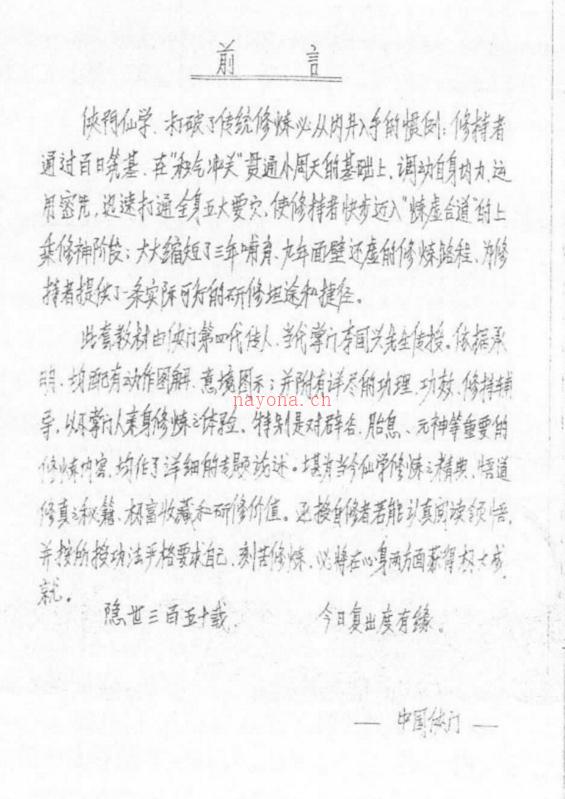 前言
侠門仙学,打破了传统修炼必从内丹入手的惯例;修持者
通过百日筑基、在“积气冲关”贯通小周天的基础上,调动自身均力,运
用密咒,迅速打通全身五大要穴,使修持者快步迈入“煉虚合道”的上
乘修神阶段;大大缩短了三年哺育、九年面壁还虚的修炼路程,为修
持者提供了一条实际可行的研修坦途和捷径。
此套教材由侠门第四代传人、当代掌门李国兴先生传授。依据承
明,均配有动作图解、意境图示;并附有详尽的功理、功效、修持辅
导,以及掌门人亲身修炼之体验。特别是对辟谷、胎息、元神等重要的
修炼内容,均作了详细的专题论述。堪为当今仙学修炼之精典、悟道
修真之秘籍、极富收藏和研修价值。函授自修者若能认真阅读领悟,
并按所授功法严格要求自己,刻苦修炼,必将在心身两方面获得极大成
就。
隐世三百五十载, 今日复出度有缘。
— 中国侠门 —
nayona.cn